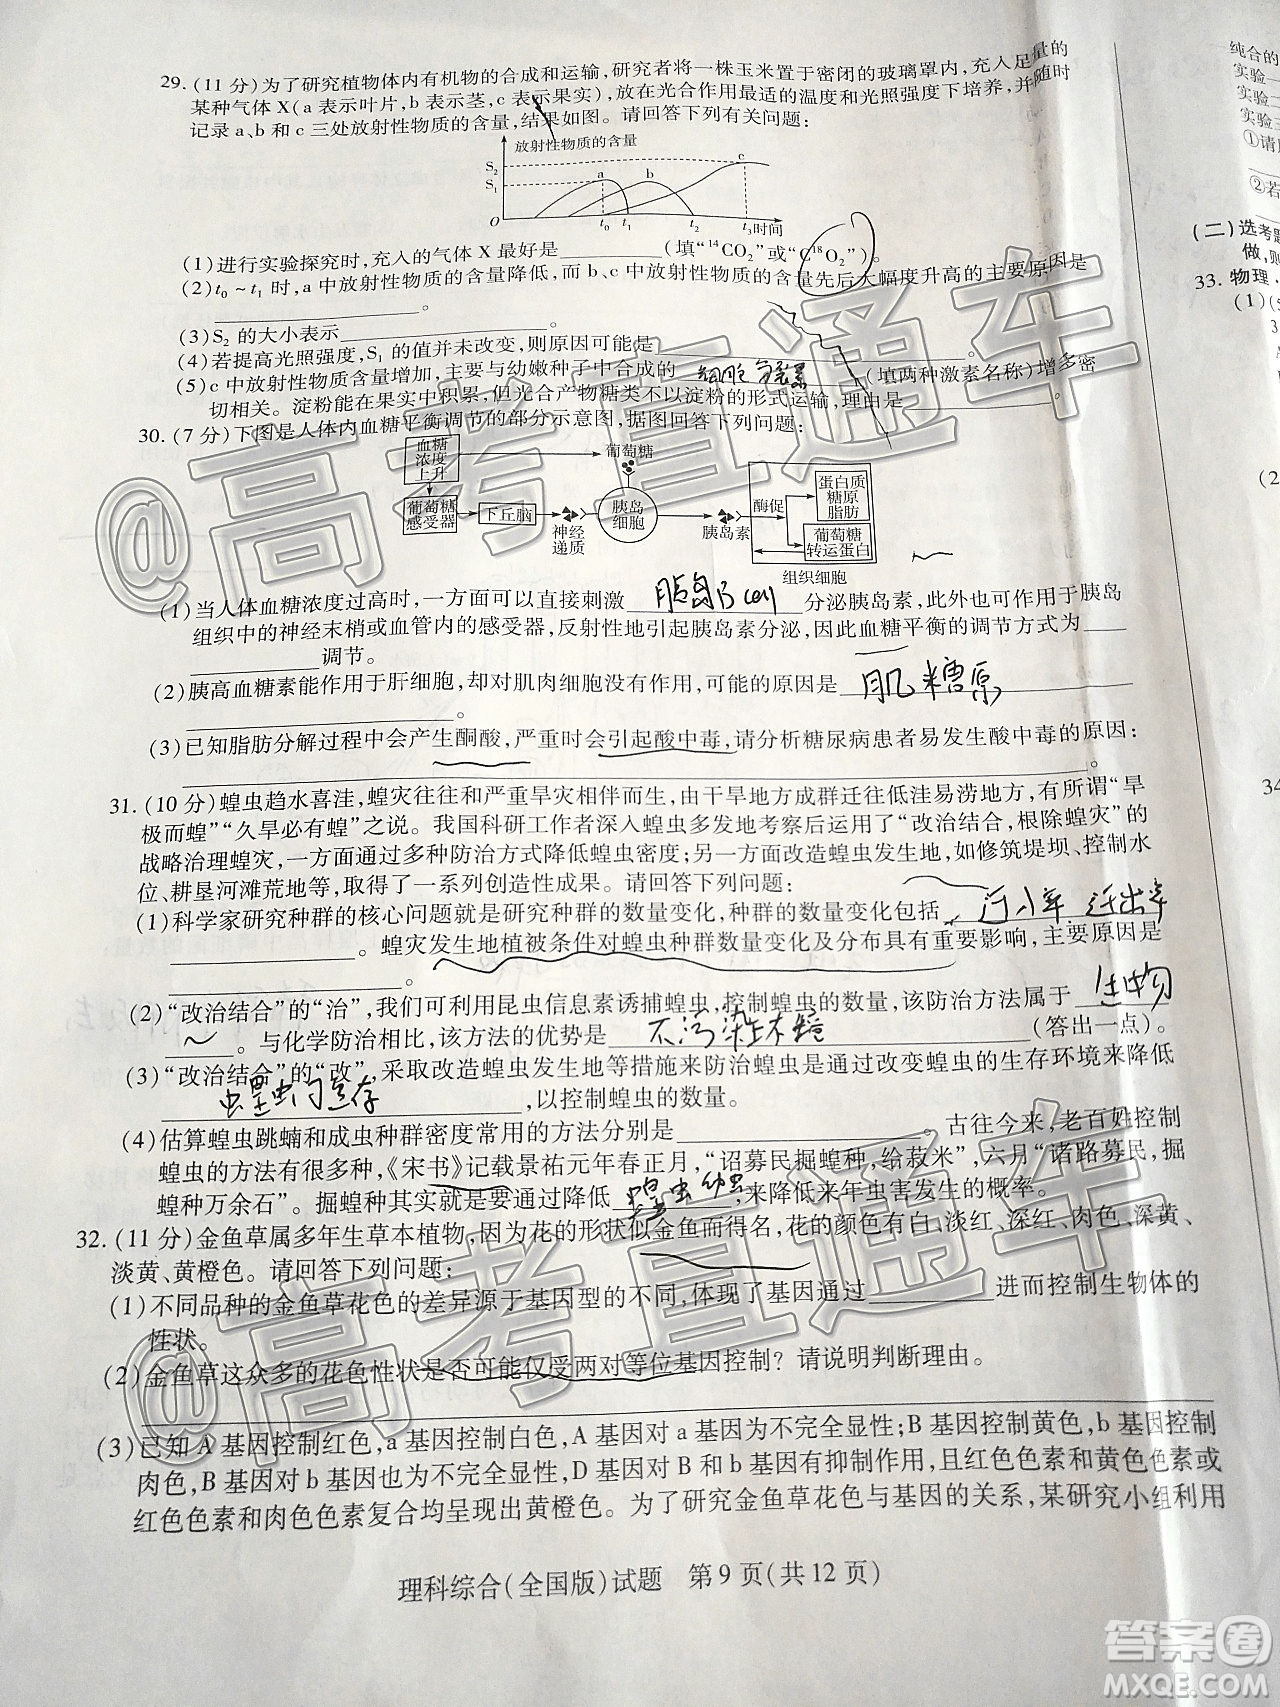 29.(11分)为了研究植物体内有机物的合成和运输,研究者将一株玉米置于密闭的玻璃罩内,充入足量的
某种气体X(a表示叶片,b表示茎,c表示果实),放在光合作用最适的温度和光照强度下培养,并随时
记录a、b和c三处放射性物质的含量,结果如图。请回答下列有关问题:
放射性物质的含量
S₂
S₁
a
b
c
O
t₀
t₁
t₂
t₃时间
(1)进行实验探究时,充入的气体X最好是________(填“¹⁴CO₂”或“C¹⁸O₂”)。
(2)t₀~t₁时,a中放射性物质的含量降低,而b、c中放射性物质的含量先后大幅度升高的主要原因是
________。
(3)S₂的大小表示________。
(4)若提高光照强度,S₁的值并未改变,则原因可能是________。
(5)c中放射性物质含量增加,主要与幼嫩种子中合成的 细胞分裂素 (填两种激素名称)增多密
切相关。淀粉能在果实中积累,但光合产物糖类不以淀粉的形式运输,理由是________。
30.(7分)下图是人体内血糖平衡调节的部分示意图,据图回答下列问题:
血糖浓度上升
葡萄糖
葡萄糖感受器
下丘脑
神经递质
胰岛细胞
胰岛素
酶促
蛋白质 糖原 脂肪
葡萄糖转运蛋白
组织细胞
(1)当人体血糖浓度过高时,一方面可以直接刺激 胰岛B cell 分泌胰岛素,此外也可作用于胰岛
组织中的神经末梢或血管内的感受器,反射性地引起胰岛素分泌,因此血糖平衡的调节方式为__
________调节。
(2)胰高血糖素能作用于肝细胞,却对肌肉细胞没有作用,可能的原因是 肌糖原
________。
(3)已知脂肪分解过程中会产生酮酸,严重时会引起酸中毒,请分析糖尿病患者易发生酸中毒的原因:
________。
31.(10分)蝗虫趋水喜洼,蝗灾往往和严重旱灾相伴而生,由干旱地方成群迁往低洼易涝地方,有所谓“旱
极而蝗”“久旱必有蝗”之说。我国科研工作者深入蝗虫多发地考察后运用了“改治结合,根除蝗灾”的
战略治理蝗灾,一方面通过多种防治方式降低蝗虫密度;另一方面改造蝗虫发生地,如修筑堤坝、控制水
位、耕垦河滩荒地等,取得了一系列创造性成果。请回答下列问题:
(1)科学家研究种群的核心问题就是研究种群的数量变化,种群的数量变化包括 迁出率
________。蝗灾发生地植被条件对蝗虫种群数量变化及分布具有重要影响,主要原因是
________。
(2)“改治结合”的“治”,我们可利用昆虫信息素诱捕蝗虫,控制蝗虫的数量,该防治方法属于 生物
____。与化学防治相比,该方法的优势是 不污染土木镜 (答出一点)。
(3)“改治结合”的“改”,采取改造蝗虫发生地等措施来防治蝗虫是通过改变蝗虫的生存环境来降低
蝗虫门生存________,以控制蝗虫的数量。
(4)估算蝗虫跳蝻和成虫种群密度常用的方法分别是________。古往今来,老百姓控制
蝗虫的方法有很多种,《宋书》记载景祐元年春正月,“诏募民掘蝗种,给菽米”,六月“诸路募民,掘
蝗种万余石”。掘蝗种其实就是要通过降低 蝗虫幼虫 ,来降低来年虫害发生的概率。
32.(11分)金鱼草属多年生草本植物,因为花的形状似金鱼而得名,花的颜色有白、淡红、深红、肉色、深黄、
淡黄、黄橙色。请回答下列问题:
(1)不同品种的金鱼草花色的差异源于基因型的不同,体现了基因通过________进而控制生物体的
性状。
(2)金鱼草这众多的花色性状是否可能仅受两对等位基因控制?请说明判断理由。
(3)已知A基因控制红色,a基因控制白色,A基因对a基因为不完全显性;B基因控制黄色,b基因控制
肉色,B基因对b基因也为不完全显性,D基因对B和b基因有抑制作用,且红色色素和黄色色素或
红色色素和肉色色素复合均呈现出黄橙色。为了研究金鱼草花色与基因的关系,某研究小组利用
理科综合(全国版)试题 第9页(共12页)
纯合的
实验一
实验二
实验三
①请
②若
(二)选考题
做,则
33.物理.
(1)(5
3
(2
34
@高考直通车
@高考直通车
答案圈
MXQE.COM